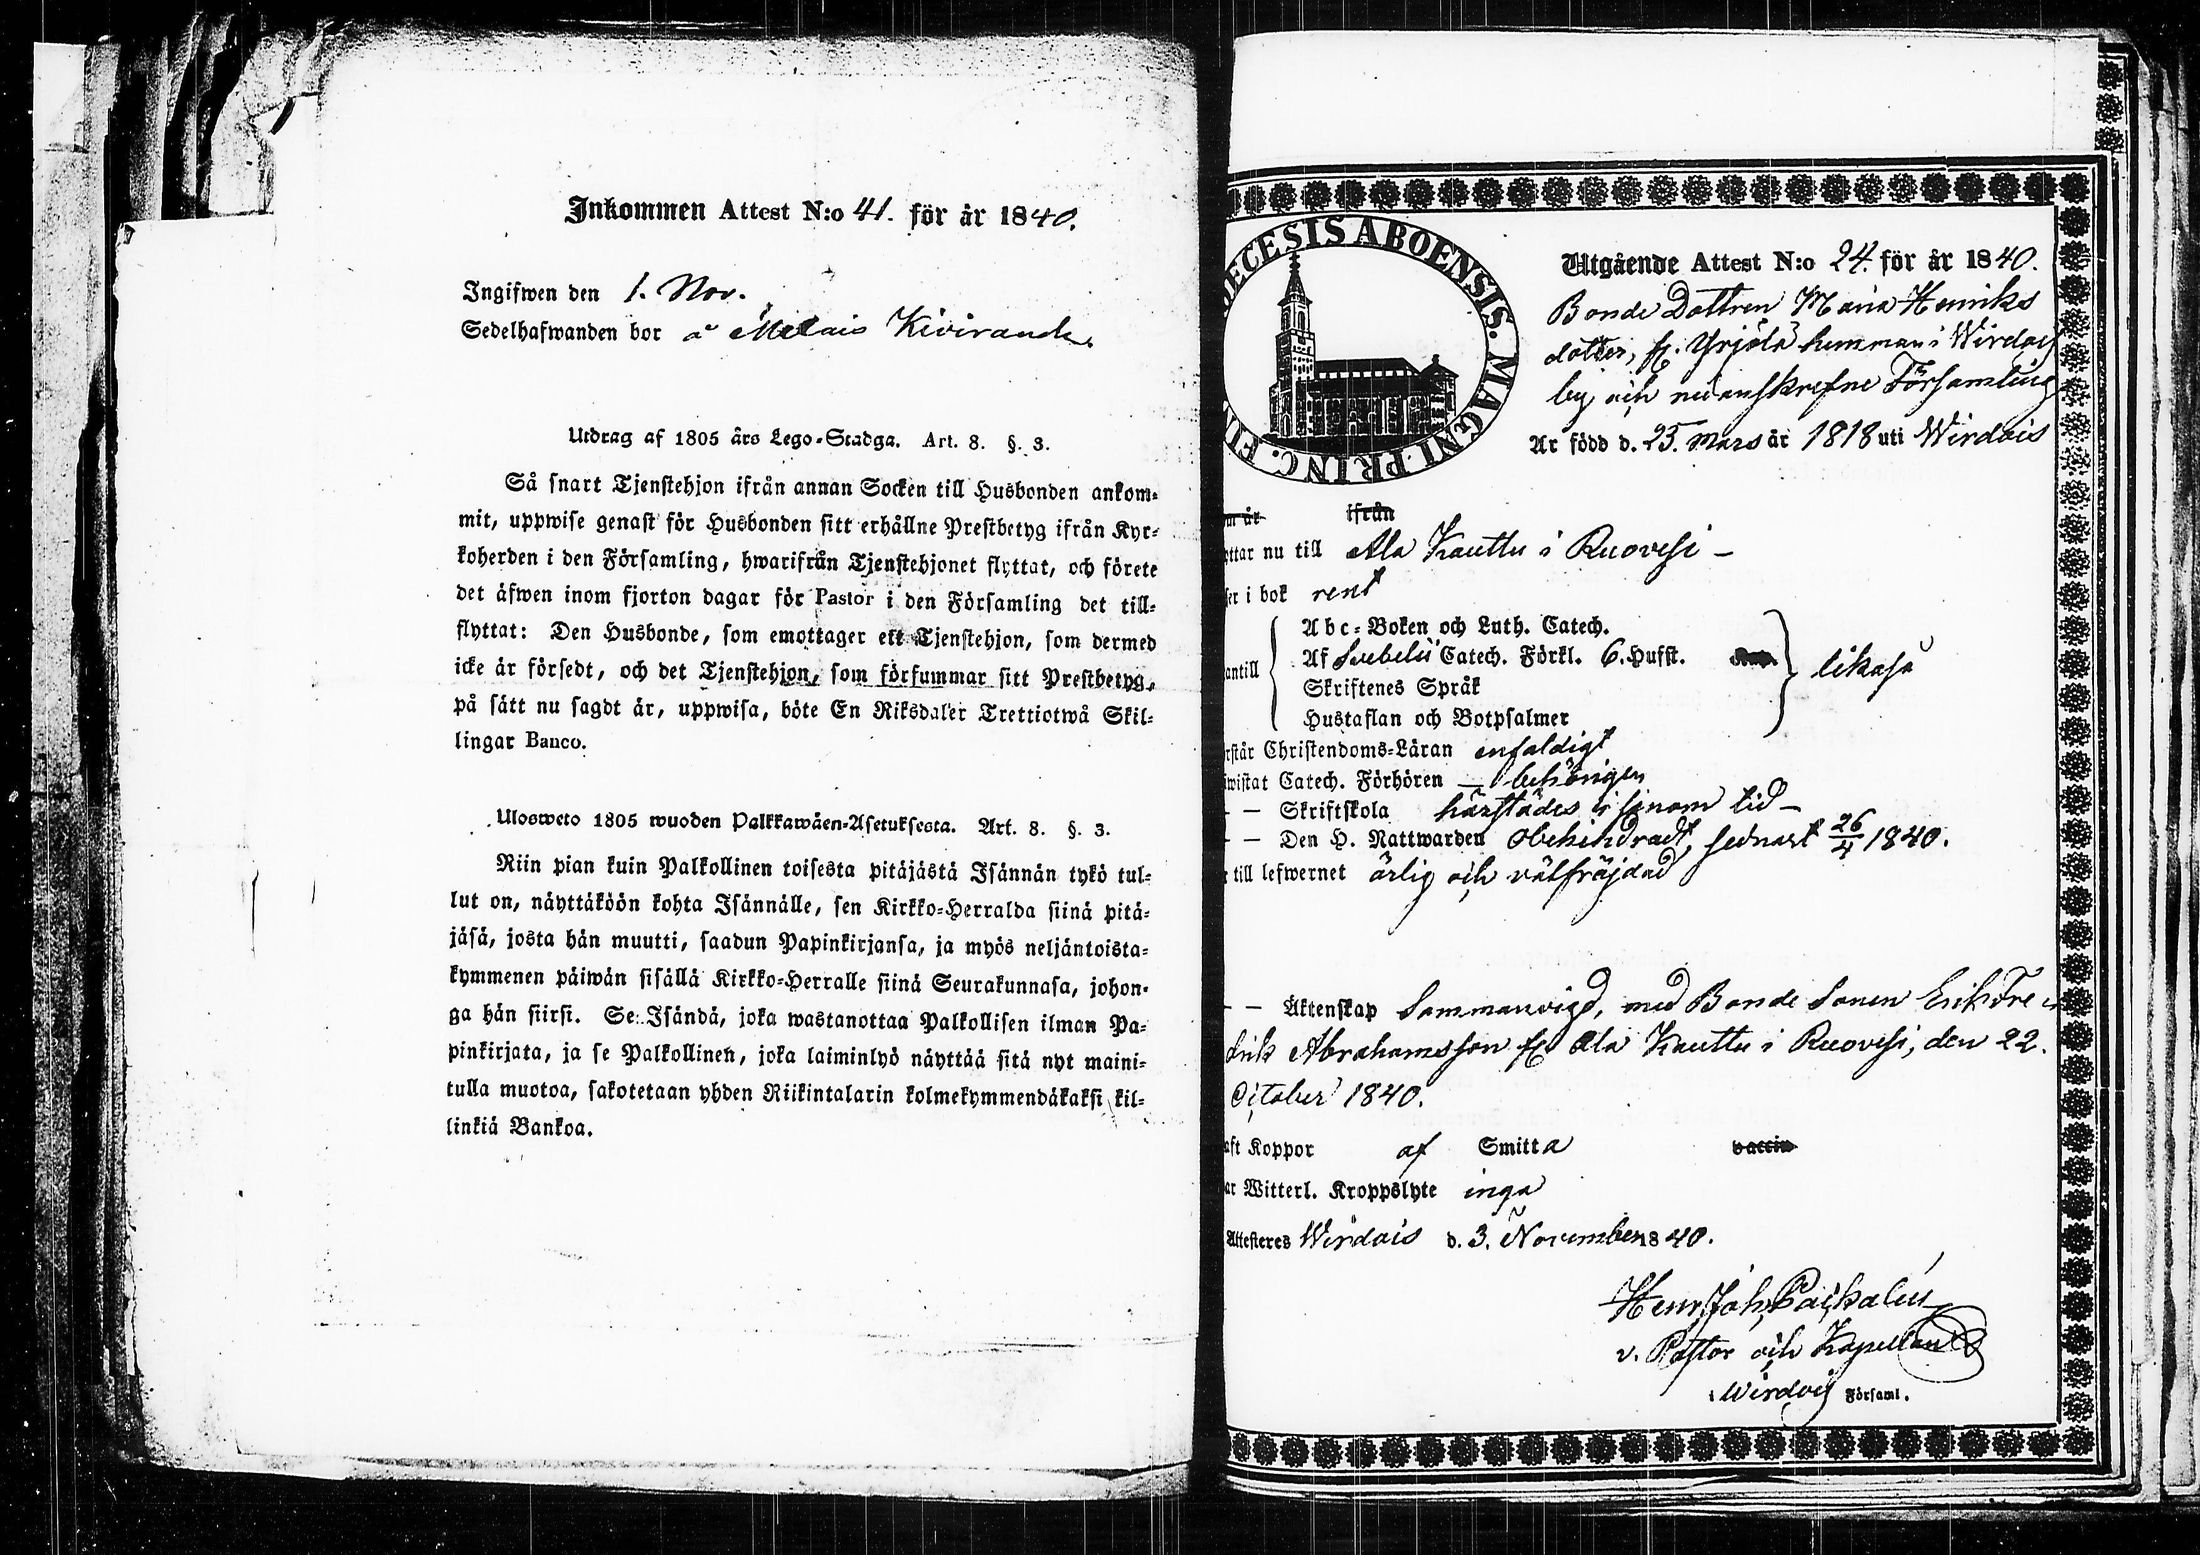 Inkommen Attest N:o 41. för år 1840.
Ingifwen den 1. Nov.
Sedelhafwanden bor å Melais Kiviranda.
Utdrag af 1805 års Lego-Stadga. Art. 8. §. 3.
Så snart Tjenstehjon ifrån annan Socken till Husbonden ankom-
mit, uppwise genast för Husbonden sitt erhållne Prestbetyg ifrån Kyr-
koherden i den Församling, hwarifrån Tjenstehjonet flyttat, och förete
det äfwen inom fjorton dagar för Pastor i den Församling det till-
flyttat: Den Husbonde, som emottager ett Tjenstehjon, som dermed
icke är försedt, och det Tjenstehjon, som försummar sitt Prestbetyg,
på sätt nu sagdt är, uppwisa, böte En Riksdaler Trettiotwå Skil-
lingar Banco.
Ulosweto 1805 wuoden Palkkawäen-Asetuksesta. Art. 8. §. 3.
Niin pian kuin Palkollinen toisesta pitäjästä Isännän tykö tul-
lut on, näyttäköön kohta Isännälle, sen Kirkko-Herralda siinä pitä-
jäsä, josta hän muutti, saadun Papinkirjansa, ja myös neljäntoista-
kymmenen päiwän sisällä Kirkko-Herralle siinä Seurakunnasa, johon-
ga hän siirsi. Se Isändä, joka wastanottaa Palkollisen ilman Pa-
pinkirjata, ja se Palkollinen, joka laiminlyö näyttää sitä nyt maini-
tulla muotoa, sakotetaan yhden Riikintalarin kolmekymmendäkaksi kil-
linkiä Bankoa.
ECESIS ABOENSIS. MAGNI PRINC. FI
Utgående Attest N:o 24. för år 1840.
Bonde Dottren Maria Henriks
dotter, fr. Yrjölä hemman i Wirdois
by och nedanskrefne Församling
Är född d. 25. Mars år 1818 uti Wirdois
m år ifrån
ttar nu till Ala Kauttu i Ruovesi —
ser i bok rent
antill
Abc-Boken och Luth. Catech.
Af Svebelii Catech. Förkl. 6. Hufst.
Skriftenes Språk
Hustaflan och Botpsalmer
likaså
rstår Christendoms-Läran enfaldigt
wistat Catech. Förhören — behörigen
— — Skriftskola härstädes i sinom tid —
— — Den H. Nattwarden obehindradt, sednast 26/4 1840.
r till lefwernet ärlig och välfräjdad
— — Äktenskap Sammanvigd, med Bonde Sonen Erik Fre-
drik Abrahamsson fr Ala Kauttu i Ruovesi, den 22.
October 1840.
aft Koppor af Smitta vaccin
ar Witterl. Kroppslyte inga
Attesteres Wirdois d. 3. November 1840.
Henr. Joh. Paschalin
v. Pastor och Kapellan
i Wirdois Församl.